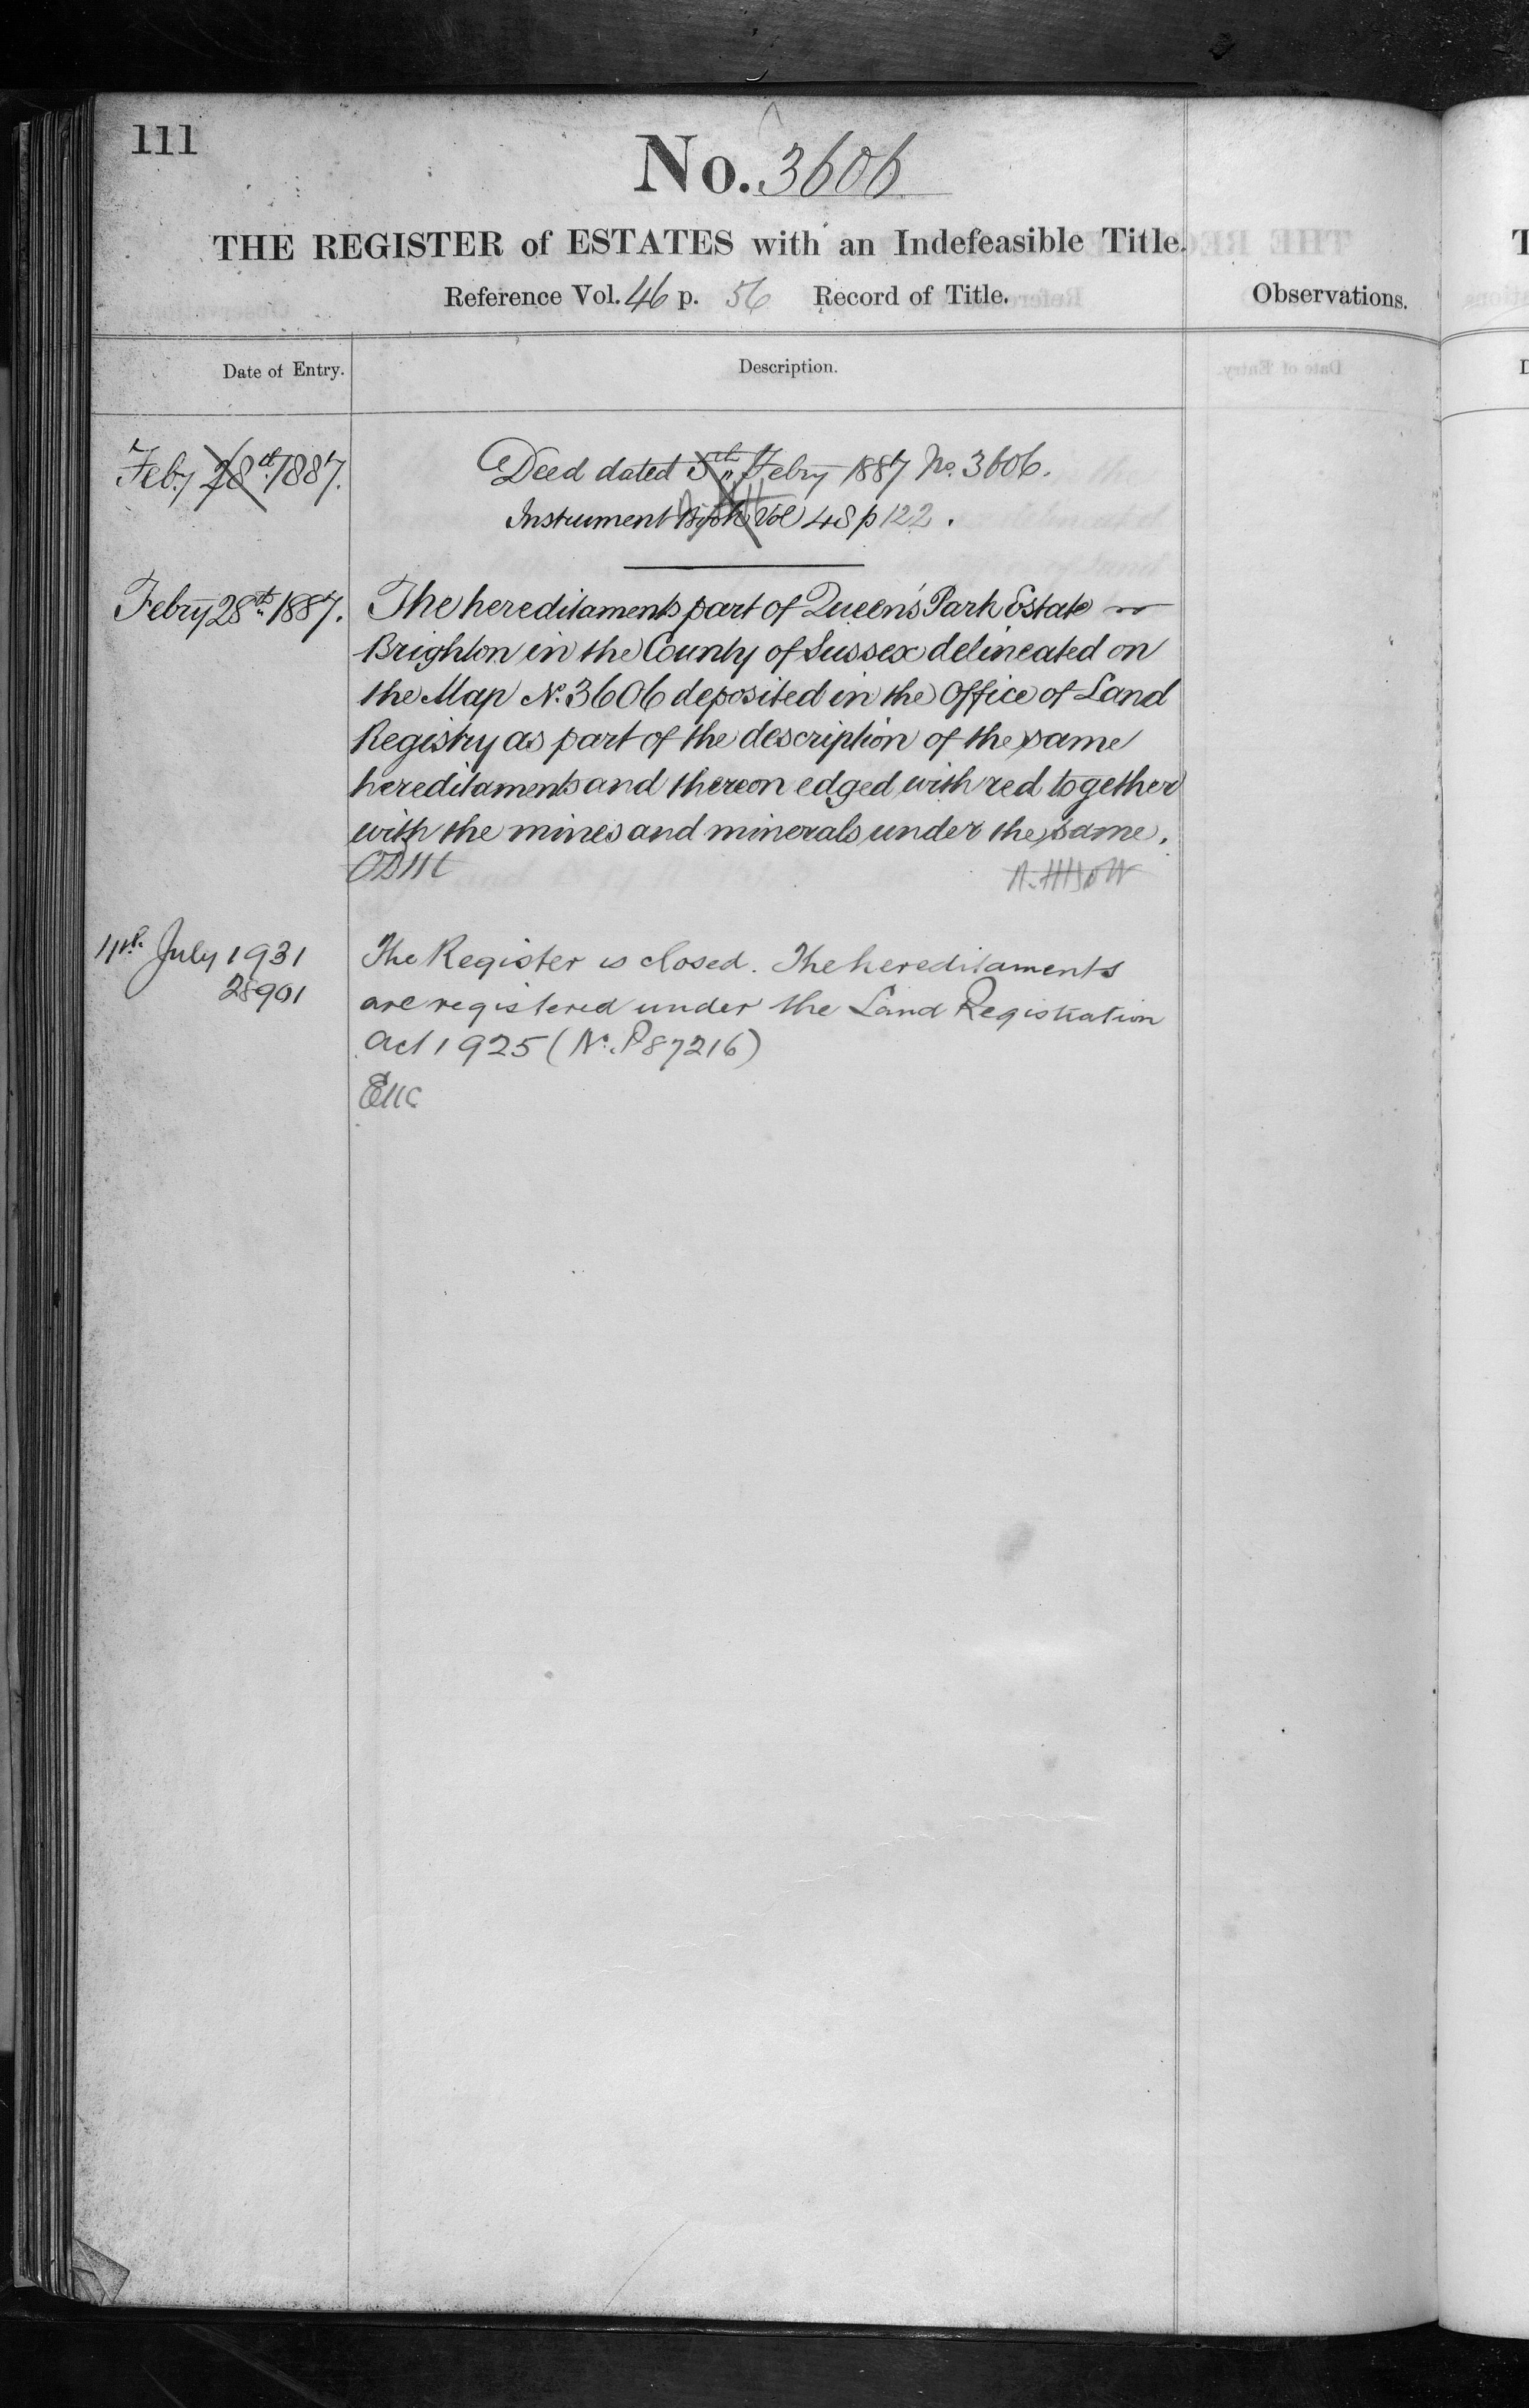 111
No. 3606
THE REGISTER of ESTATES with an Indefeasible Title.
Reference Vol. 46 p. 56 Record of Title.
Observations.
Date of Entry.
Description.
Feby 28th 1887.
Deed dated 5th Febry 1887 No. 3606.
Instrument Book Vol 48 p 122.
Febry 28th 1887.
The hereditaments part of Queen's Park Estate
Brighton in the County of Sussex delineated on
the Map No. 3606 deposited in the Office of Land
Registry as part of the description of the same
hereditaments and thereon edged with red together
with the mines and minerals under the same.
July 1931
28901
The Register is closed. The hereditaments
are registered under the Land Registration
Act 1925 (No. P87216)